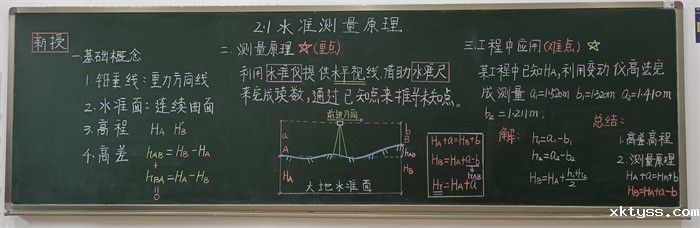 2.1 水准测量原理
新授
一.基础概念
1.铅垂线:重力方向线
2.水准面:连续曲面
3.高程 HA HB
4.高差 hAB=HB-HA
+
hBA=HA-HB
0
二.测量原理 ☆(重点)
利用水准仪提供水平视线,借助水准尺
来完成读数,通过已知点来推导未知点。
前进方向
a
b
A
B
hAB
HA
HB
大地水准面
HA+a=HB+b
HB=HA+a-b
hAB
Hi=HA+a
三.工程中应用(难点)☆
某工程中已知HA,利用变动仪高法完
成测量 a1=1.520m b1=1.320m a2=1.410m
b2=1.211m.
解:
h1=a1-b1
h2=a2-b2
HB=HA+h1+h2/2
总结:
1.高差,高程
2.测量原理
HA+a=HB+b
HB=HA+a-b
xktyss.com